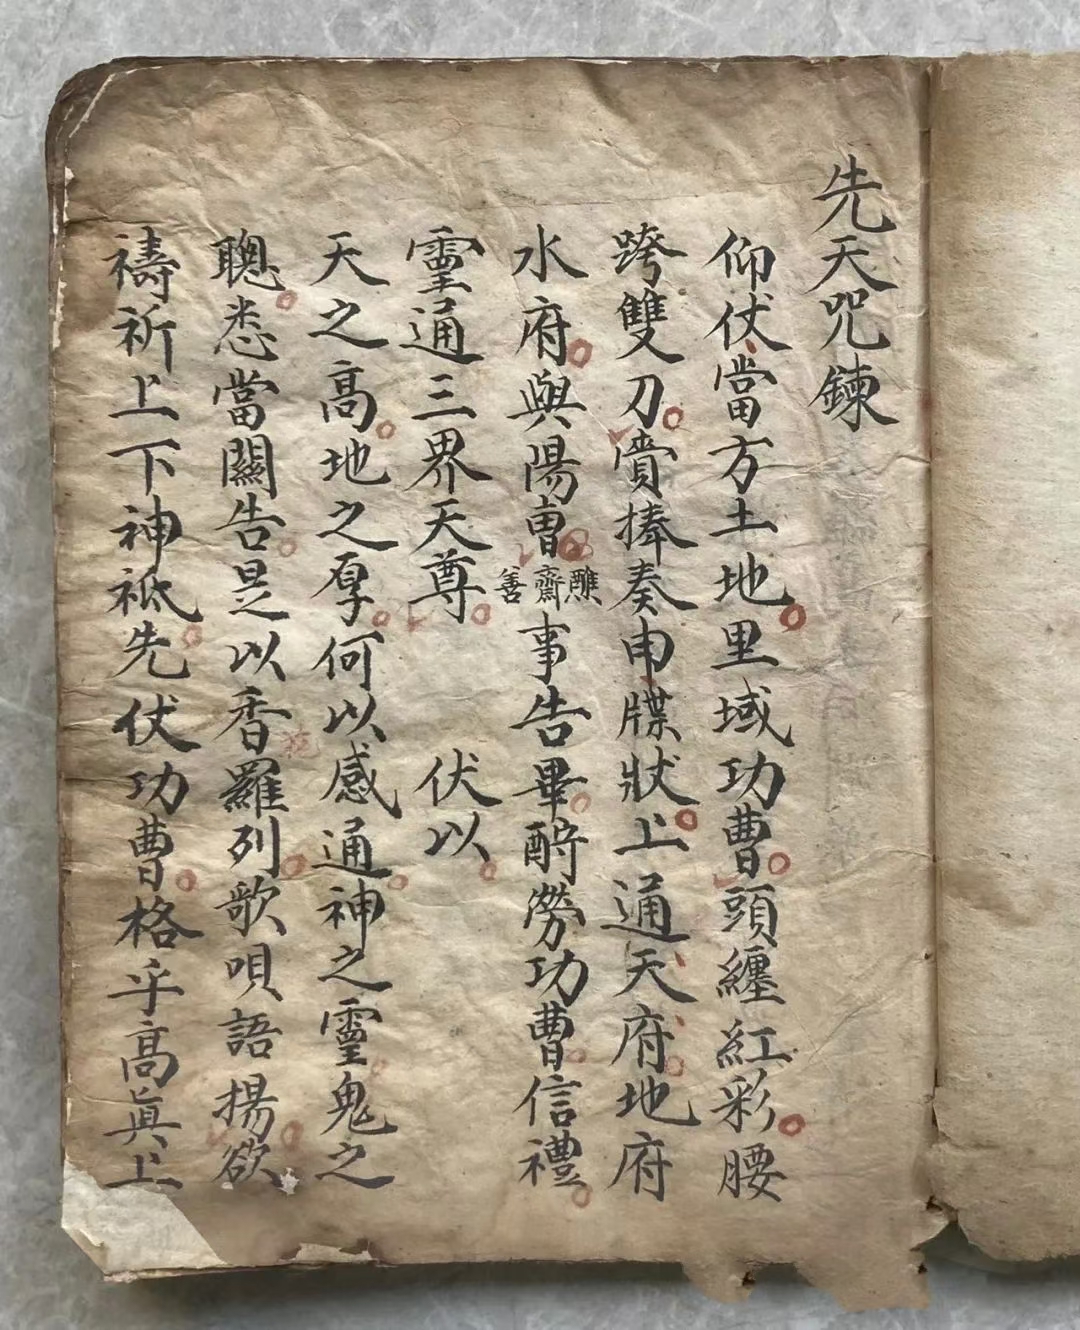 先天咒鍊
仰伏當方土地里域功曹頭纏紅彩腰
跨雙刀賫捧奏申牒狀上通天府地府
水府與陽曹醮齋善事告畢酧勞功曹信禮
靈通三界天尊 伏以
天之高地之厚何以感通神之靈鬼之
聰悉當關告是以香羅列歌唄語揚欲
禱祈上下神祗先伏功曹格乎高眞上